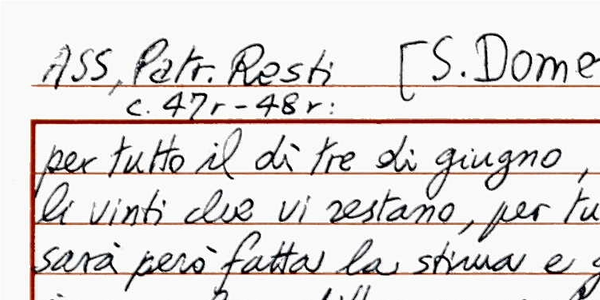 ASS, Patr. Resti [S. Dome
c. 47r-48r:
per tutto il dì tre di giugno,
li vinti che vi restano, per tu
sarà però fatta la stima e